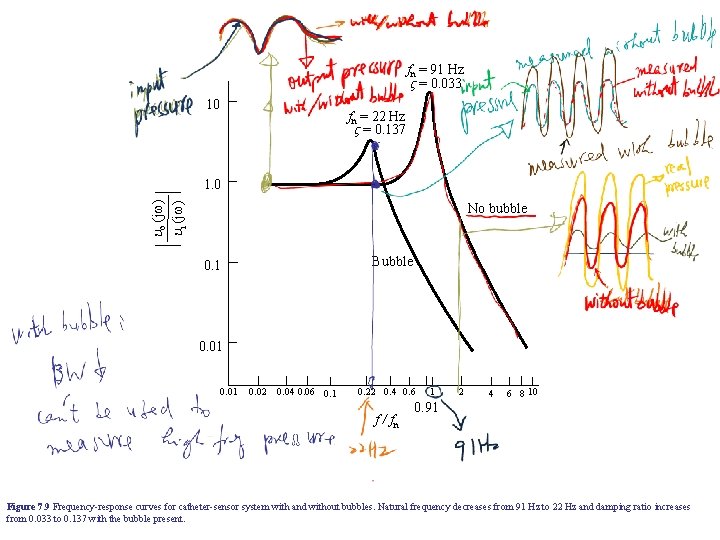 with/without bubble
input pressure
output pressure
with/without bubble
fn = 91 Hz
ς = 0.033
input pressure
measured without bubble
measured without bubble
fn = 22 Hz
ς = 0.137
measured with bubble
real pressure
with bubble
without bubble
10
1.0
0.1
0.01
uo (jω)
ui (jω)
No bubble
Bubble
with bubble:
BW ↓
can't be used to
measure high frq pressure
0.01 0.02 0.04 0.06 0.1 0.22 0.4 0.6 1 2 4 6 8 10
0.91
f / fn
22HZ
91Hz
Figure 7.9 Frequency-response curves for catheter-sensor system with and without bubbles. Natural frequency decreases from 91 Hz to 22 Hz and damping ratio increases
from 0.033 to 0.137 with the bubble present.